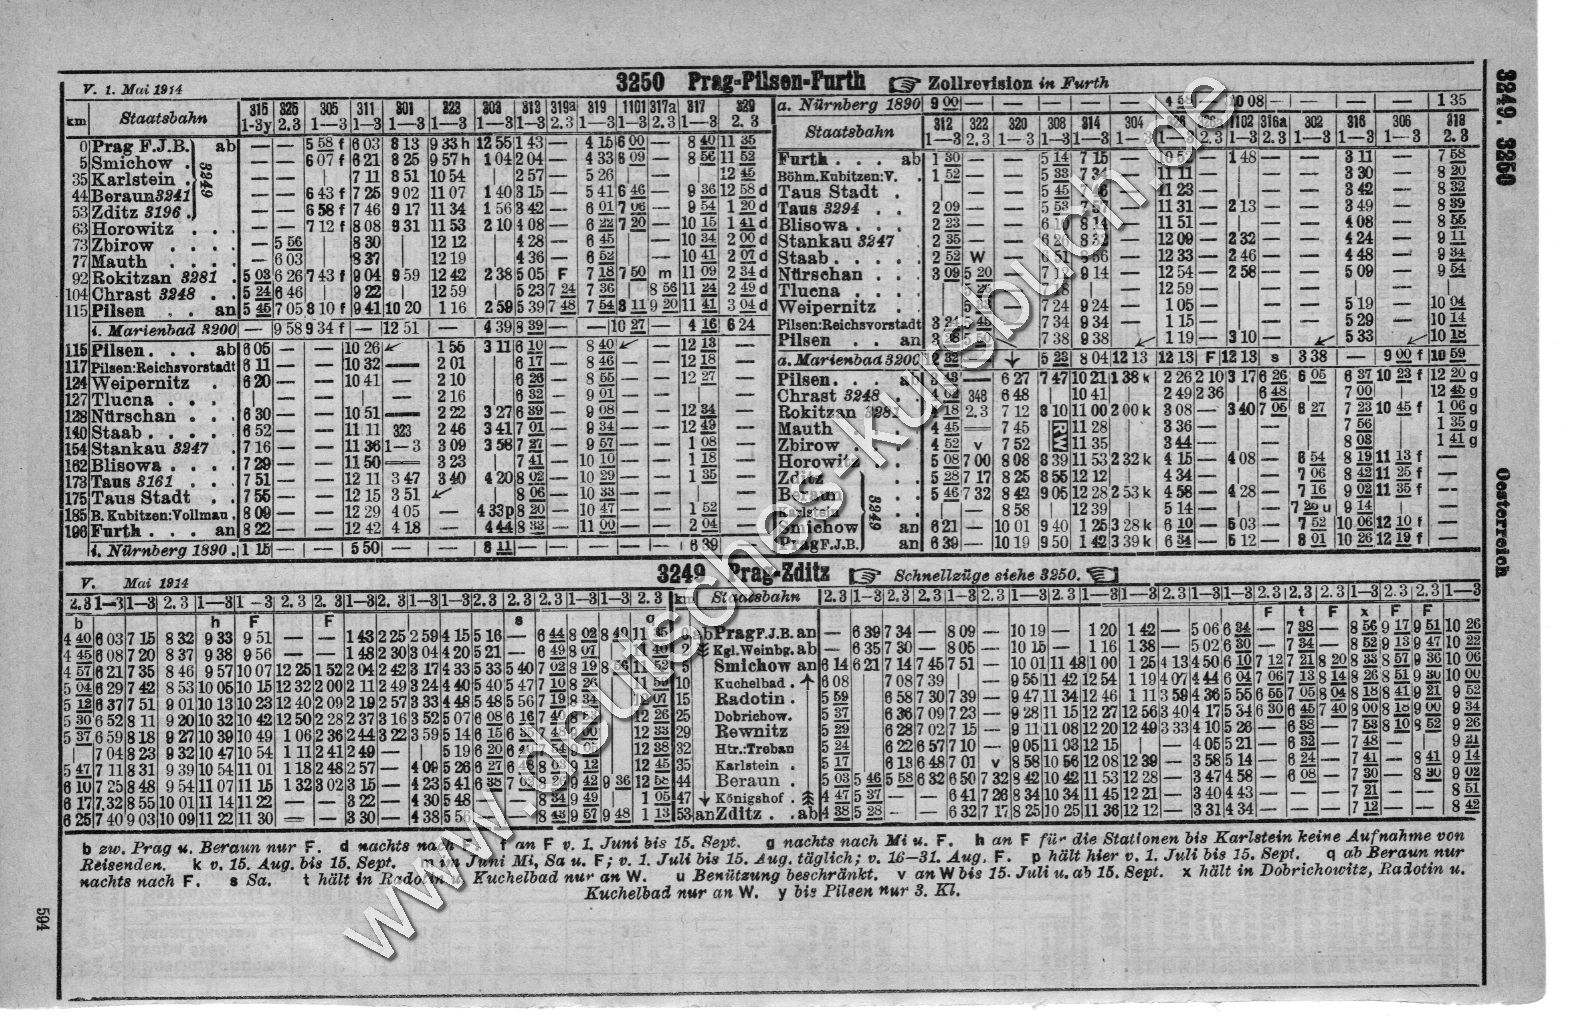 3250 Prag-Pilsen-Furth Zollrevision in Furth
V. 1. Mai 1914
km Staatsbahn 315 325 305 311 301 323 303 313 319a 319 1101 317a 317 329
1-3y 2.3 1—3 1—3 1—3 1—3 1—3 1—3 2.3 1—3 1—3 2.3 1—3 2. 3
0 Prag F.J.B. ab — — 5 58 f 6 03 8 13 9 33 h 12 55 1 43 — 4 15 6 00 — 8 40 11 35
5 Smichow — — 6 07 f 6 21 8 25 9 57 h 1 04 2 04 — 4 33 6 09 — 8 56 11 52
35 Karlstein 7 11 8 51 10 54 2 57 — 5 26 12 45
44 Beraun 3241 — — 6 43 f 7 25 9 02 11 07 1 40 3 15 — 5 41 6 46 — 9 36 12 58 d
53 Zditz 3196 — — 6 58 f 7 46 9 17 11 34 1 56 3 42 — 6 01 7 06 — 9 54 1 20 d
63 Horowitz — — 7 12 f 8 08 9 31 11 53 2 10 4 08 — 6 22 7 20 — 10 15 1 41 d
73 Zbirow — 5 56 8 30 12 12 4 28 — 6 45 — 10 34 2 00 d
77 Mauth — 6 03 8 37 12 19 4 36 — 6 52 — 10 41 2 07 d
92 Rokitzan 3281 5 03 6 26 7 43 f 9 04 9 59 12 42 2 38 5 05 F 7 18 7 50 m 11 09 2 34 d
104 Chrast 3248 5 24 6 46 9 22 12 59 5 23 7 24 7 36 8 56 11 24 2 49 d
115 Pilsen an 5 45 7 05 8 10 f 9 41 10 20 1 16 2 59 5 39 7 48 7 54 8 11 9 20 11 41 3 04 d
i. Marienbad 3200 — 9 58 9 34 f — 12 51 — 4 39 8 39 — — 10 27 — 4 16 6 24
115 Pilsen ab 6 05 — — 10 26 1 55 3 11 6 10 — 8 40 — 12 13
117 Pilsen:Reichsvorstadt 6 11 — — 10 32 2 01 6 17 — 8 46 — 12 18
124 Weipernitz 6 20 — — 10 41 2 10 6 26 — 8 55 — 12 27
127 Tlucna 2 16 6 32 — 9 01
128 Nürschan 6 30 — — 10 51 2 22 3 27 6 39 — 9 08 — 12 34
140 Staab 6 52 — — 11 11 323 2 46 3 41 7 01 — 9 34 — 12 49
154 Stankau 3247 7 16 — — 11 36 1—3 3 09 3 58 7 27 — 9 57 — 1 08
162 Blisowa 7 29 — — 11 50 3 23 7 41 — 10 10 — 1 18
173 Taus 3161 7 51 — — 12 11 3 47 3 40 4 20 8 02 — 10 29 — 1 35
175 Taus Stadt 7 55 — — 12 15 3 51 8 06 — 10 33
185 B. Kubitzen:Vollmau 8 09 — — 12 29 4 05 4 33 p 8 20 — 10 47 — 1 52
196 Furth an 8 22 — — 12 42 4 18 4 44 8 33 — 11 00 — 2 04
i. Nürnberg 1890 1 15 — — 5 50 — 6 11 — — — — 6 39 —
a. Nürnberg 1890 9 00 — — — — 10 08 — — — — 1 35
Staatsbahn 312 322 320 308 314 304 1102 316a 302 316 306 318
1—3 2,3 1—3 1—3 1—3 1—3 1—3 2.3 1—3 1—3 1—3 2. 3
Furth ab 1 30 — — 5 14 7 15 — — 1 48 — — 3 11 — 7 58
Böhm.Kubitzen:V. 1 52 — — 5 33 — 3 30 — 8 20
Taus Stadt 5 45 11 23 — 3 42 — 8 32
Taus 3294 2 09 — — 5 53 11 31 — 2 13 — — 3 49 — 8 39
Blisowa 2 23 — — 11 51 — 4 08 — 8 55
Stankau 3247 2 35 — — 12 09 — 2 32 — — 4 24 — 9 11
Staab 2 52 W 12 33 — 2 46 — — 4 48 — 9 34
Nürschan 3 09 5 20 9 14 — 12 54 — 2 58 — — 5 09 — 9 54
Tlucna 12 59
Weipernitz 7 24 9 24 — 1 05 — 5 19 — 10 04
Pilsen:Reichsvorstadt 7 34 9 34 — 1 15 — 5 29 — 10 14
Pilsen an 7 38 9 38 1 19 — 3 10 5 33 10 18
a. Marienbad 3200 5 23 8 04 12 13 12 13 F 12 13 s 3 38 — 9 00 f 10 59
Pilsen ab — 6 27 7 47 10 21 1 38 k 2 26 2 10 3 17 6 26 6 05 6 37 10 23 f 12 20 g
Chrast 3248 348 6 48 10 41 2 49 2 36 6 48 7 00 12 45 g
Rokitzan 2,3 7 12 8 10 11 00 2 00 k 3 08 — 3 40 7 05 6 27 7 23 10 45 f 1 06 g
Mauth 4 45 — 7 45 RW 11 28 3 36 — 7 56 1 35 g
Zbirow 4 52 v 7 52 11 35 3 44 — 8 03 1 41 g
Horowitz 5 08 7 00 8 08 8 39 11 53 2 32 k 4 15 — 4 08 — 6 54 8 19 11 13 f —
Zditz 5 28 7 17 8 25 8 55 12 12 4 34 — 7 06 8 42 11 25 f —
Beraun 5 46 7 32 8 42 9 05 12 28 2 53 k 4 58 — 4 28 — 7 16 9 02 11 35 f —
Karlstein 8 58 12 39 5 14 — 9 14 —
Smichow an 6 21 — 10 01 9 40 1 25 3 28 k 6 10 — 5 03 — 7 52 10 06 12 10 f —
Prag F.J.B. an 6 39 — 10 19 9 50 1 42 3 39 k 6 34 — 5 12 — 8 01 10 26 12 19 f —
3249 Prag-Zditz Schnellzüge siehe 3250.
V. Mai 1914
2.3 1—3 1—3 2.3 1—3 1—3 2.3 2.3 1—3 2.3 1—3 1—3 2.3 2.3 2.3 1—3 1—3 2.3 km Staatsbahn
b h F F s q
4 40 6 03 7 15 8 32 9 33 9 51 — — 1 43 2 25 2 59 4 15 5 16 — 6 44 8 02 8 49 ab Prag F.J.B. an — 6 39 7 34 — 8 09 — 10 19 — 1 20 1 42 — 5 06 6 34 — 7 38 — 8 56 9 17 9 51 10 26
4 45 6 08 7 20 8 37 9 38 9 56 — — 1 48 2 30 3 04 4 20 5 21 — 6 49 8 07 Kgl.Weinbg. ab — 6 35 7 30 — 8 05 — 10 15 — 1 16 1 38 — 5 02 6 30 — 7 34 — 8 52 9 13 9 47 10 22
4 57 6 21 7 35 8 46 9 57 10 07 12 25 1 52 2 04 2 42 3 17 4 33 5 33 5 40 7 02 8 19 8 56 11 52 5 Smichow an 6 14 6 21 7 14 7 45 7 51 — 10 01 11 48 1 00 1 25 4 13 4 50 6 10 7 12 7 21 8 20 8 33 8 57 9 36 10 06
5 04 6 29 7 42 8 53 10 05 10 15 12 32 2 00 2 11 2 49 3 24 4 40 5 40 5 47 7 10 8 26 10 Kuchelbad 6 08 7 08 7 39 — 9 55 11 42 12 54 1 19 4 07 4 44 6 04 7 06 7 13 8 14 8 26 8 51 9 30 10 00
5 12 6 37 7 51 9 01 10 13 10 23 12 40 2 09 2 19 2 57 3 33 4 48 5 48 5 56 7 19 8 34 15 Radotin 5 59 6 58 7 30 7 39 — 9 47 11 34 12 46 1 11 3 59 4 36 5 55 6 55 7 05 8 04 8 18 8 41 9 21 9 52
5 30 6 52 8 11 9 20 10 32 10 42 12 50 2 28 2 37 3 16 3 52 5 07 6 08 6 16 12 26 25 Dobrichow. 5 37 6 36 7 09 7 23 — 9 28 11 15 12 27 12 56 3 40 4 17 5 34 6 30 6 45 7 40 8 00 8 18 9 00 9 34
5 37 6 59 8 18 9 27 10 39 10 49 1 06 2 36 2 44 3 22 3 59 5 14 6 15 12 33 29 Rewnitz 5 29 6 28 7 02 7 15 — 9 11 11 08 12 20 12 49 3 33 4 10 5 26 — 6 38 — 7 53 8 10 8 52 9 26
7 04 8 23 9 32 10 47 10 54 1 11 2 41 2 49 — 5 19 6 20 12 38 32 Htr.:Treban 5 24 6 22 6 57 7 10 — 9 05 11 03 12 15 4 05 5 21 — 6 32 — 7 48 — 9 21
5 47 7 11 8 31 9 39 10 54 11 01 1 18 2 48 2 57 — 4 09 5 26 6 27 12 45 35 Karlstein 5 17 6 13 6 48 7 01 v 8 58 10 56 12 08 12 39 — 3 58 5 14 — 6 24 — 7 41 — 8 41 9 14
6 10 7 25 8 48 9 54 11 07 11 15 1 32 3 02 3 15 — 4 23 5 41 9 42 9 36 12 58 44 Beraun 5 03 5 46 5 58 6 32 6 50 7 32 8 42 10 42 11 53 12 28 — 3 47 4 58 — 6 08 — 7 30 — 8 30 9 02
6 17 7 32 8 55 10 01 11 14 11 22 — — 3 22 — 4 30 5 48 — — 8 34 9 49 1 05 47 Königshof 4 47 5 37 — — 6 41 7 26 8 34 10 34 11 45 12 21 — 3 40 4 43 — — — 7 21 — — 8 51
6 25 7 40 9 03 10 09 11 22 11 30 — — 3 30 — 4 38 — — 8 43 9 57 9 48 1 13 53 an Zditz ab 4 38 5 28 — — 6 32 7 17 8 25 10 25 11 36 12 12 — 3 31 4 34 — — — 7 12 — — 8 42
b zw. Prag u. Beraun nur F. d nachts nach F. an F v. 1. Juni bis 15. Sept. g nachts nach Mi u. F. h an F für die Stationen bis Karlstein keine Aufnahme von
Reisenden. k v. 15. Aug. bis 15. Sept. m im Juni Mi, Sa u. F; v. 1. Juli bis 15. Aug. täglich; v. 16—31. Aug. F. p hält hier v. 1. Juli bis 15. Sept. q ab Beraun nur
nachts nach F. s Sa. t hält in Radotin u. Kuchelbad nur an W. u Benützung beschränkt. v an W bis 15. Juli u. ab 15. Sept. x hält in Dobrichowitz, Radotin u.
Kuchelbad nur an W. y bis Pilsen nur 3. Kl.
3249. 3250
Oesterreich
594
www.deutsches-kursbuch.de